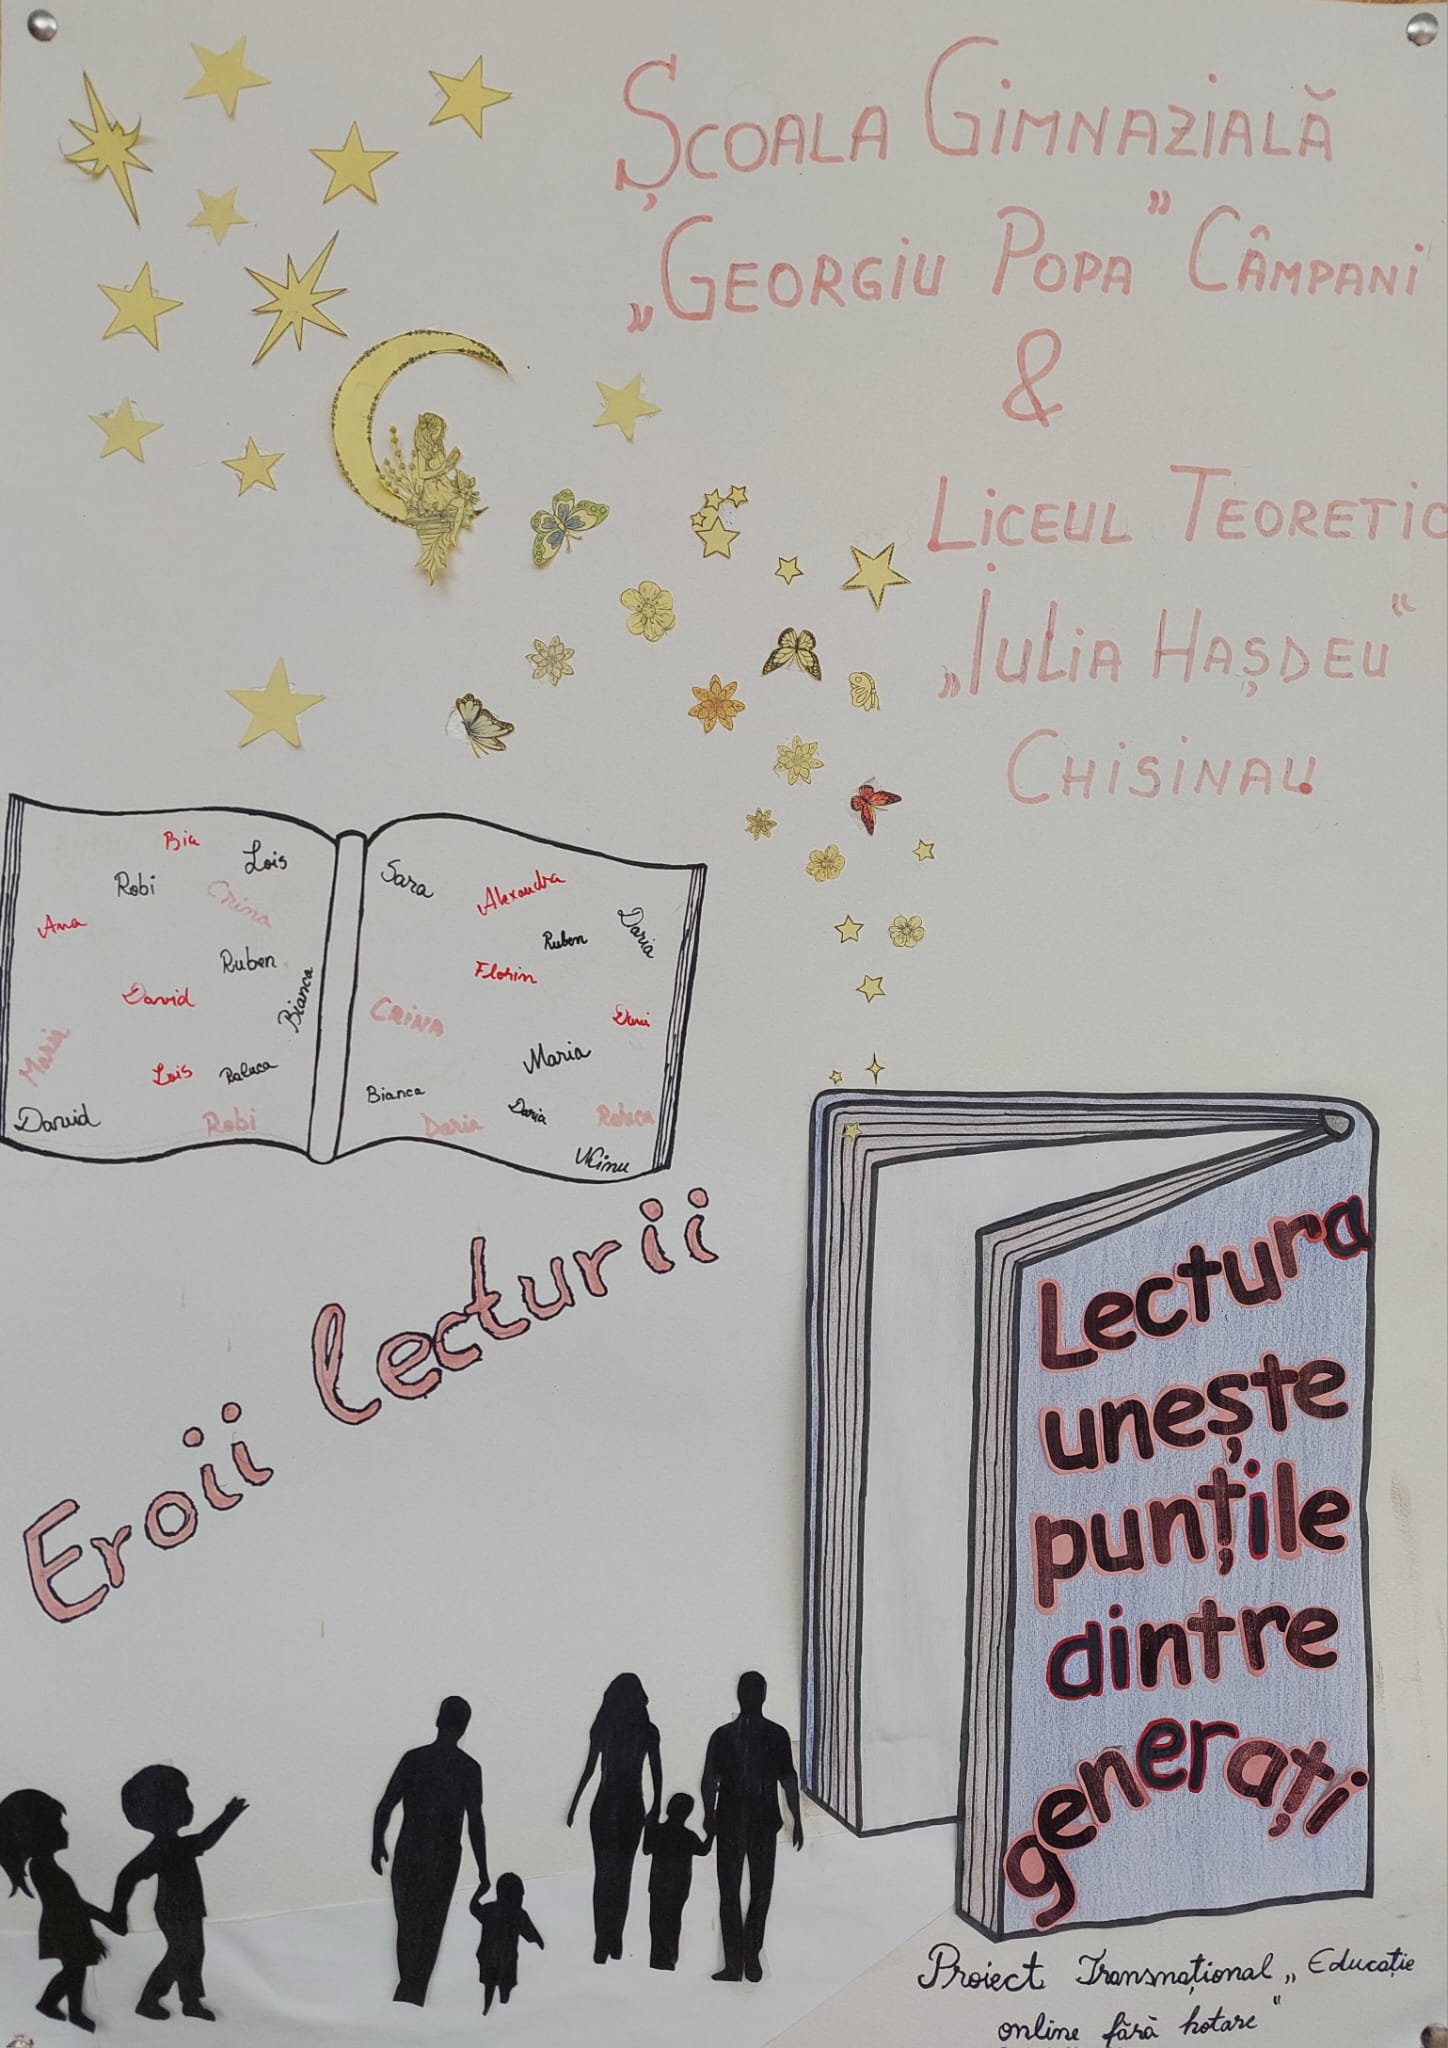 Școala Gimnazială
„Georgiu Popa” Câmpani
&
Liceul Teoretic
„Iulia Hașdeu“
Chisinau
Bia
Lois
Robi
Crina
Ana
Ruben
David
Bianca
Maria
Lois
Raluca
David
Robi
Sara
Alexandra
Daria
Ruben
Florin
Crina
Maria
Bianca
Daria
Daria
Raluca
Eroii lecturii
Lectura
unește
punțile
dintre
generați
Proiect Transnațional „Educație
online fără hotare“